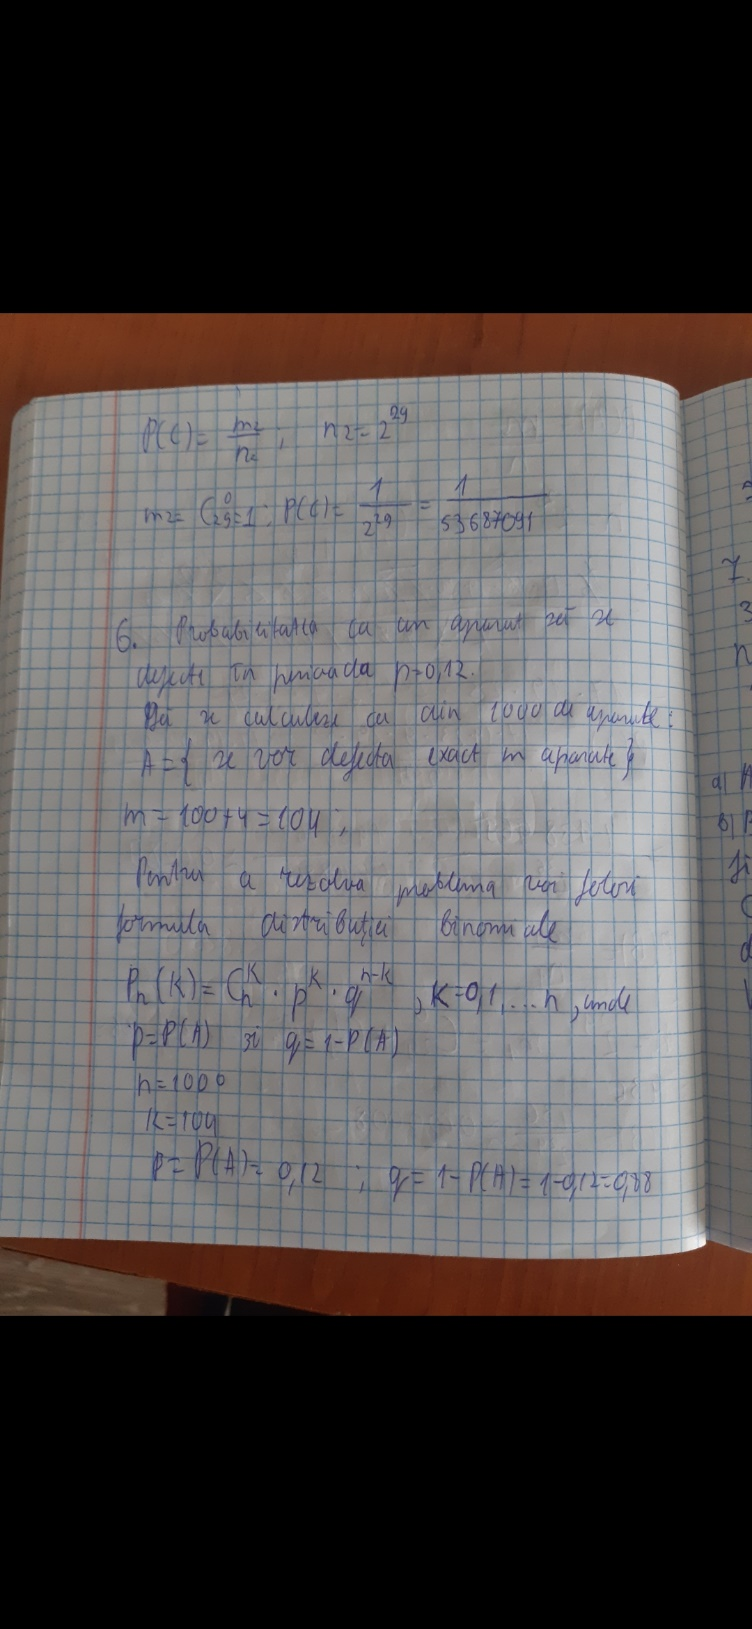 P(C) = m₂/n₂ ; n₂ = 2²⁹
m₂ = C₂₉⁰ = 1 ; P(C) = 1/2²⁹ = 1/53687091
6. Probabilitatea ca un aparat să se
defecte în perioada p=0,12.
Să se calculeze ca din 1000 de aparate:
A = { se vor defecta exact m aparate}
m = 100+4 = 104 ;
Pentru a rezolva problema voi folosi
formula distribuției binomiale
Pₙ(K) = Cₙᴷ · pᴷ · qⁿ⁻ᴷ , K=0,1,...n , unde
p=P(A) și q=1-P(A)
n=1000
K=104
p = P(A) = 0,12 ; q = 1-P(A) = 1-0,12=0,88
7.
3
n
a) A
b) B